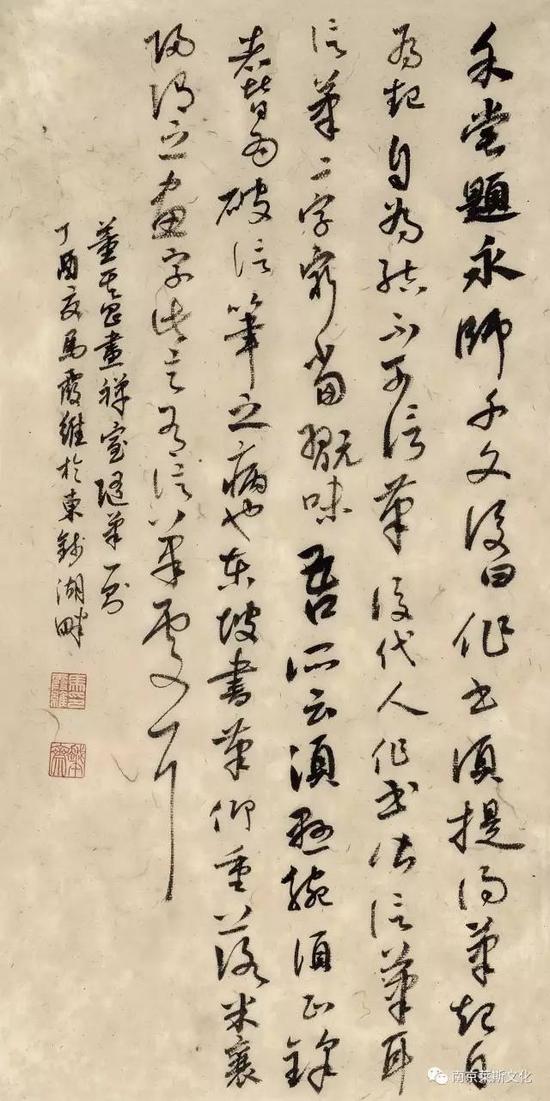 余尝題永師千文後曰作書須提得筆起自
為起自為结不可信筆後代人作書皆信筆耳
信筆二字最當玩味吾所云須懸腕須正鋒
者皆為破信筆之病也東坡書筆俱重落米襄
陽謂之畫字此言有信筆處耳
董其昌畫禪室隨筆一則
丁酉夏馬霞雄於東錢湖畔
南京莱斯文化